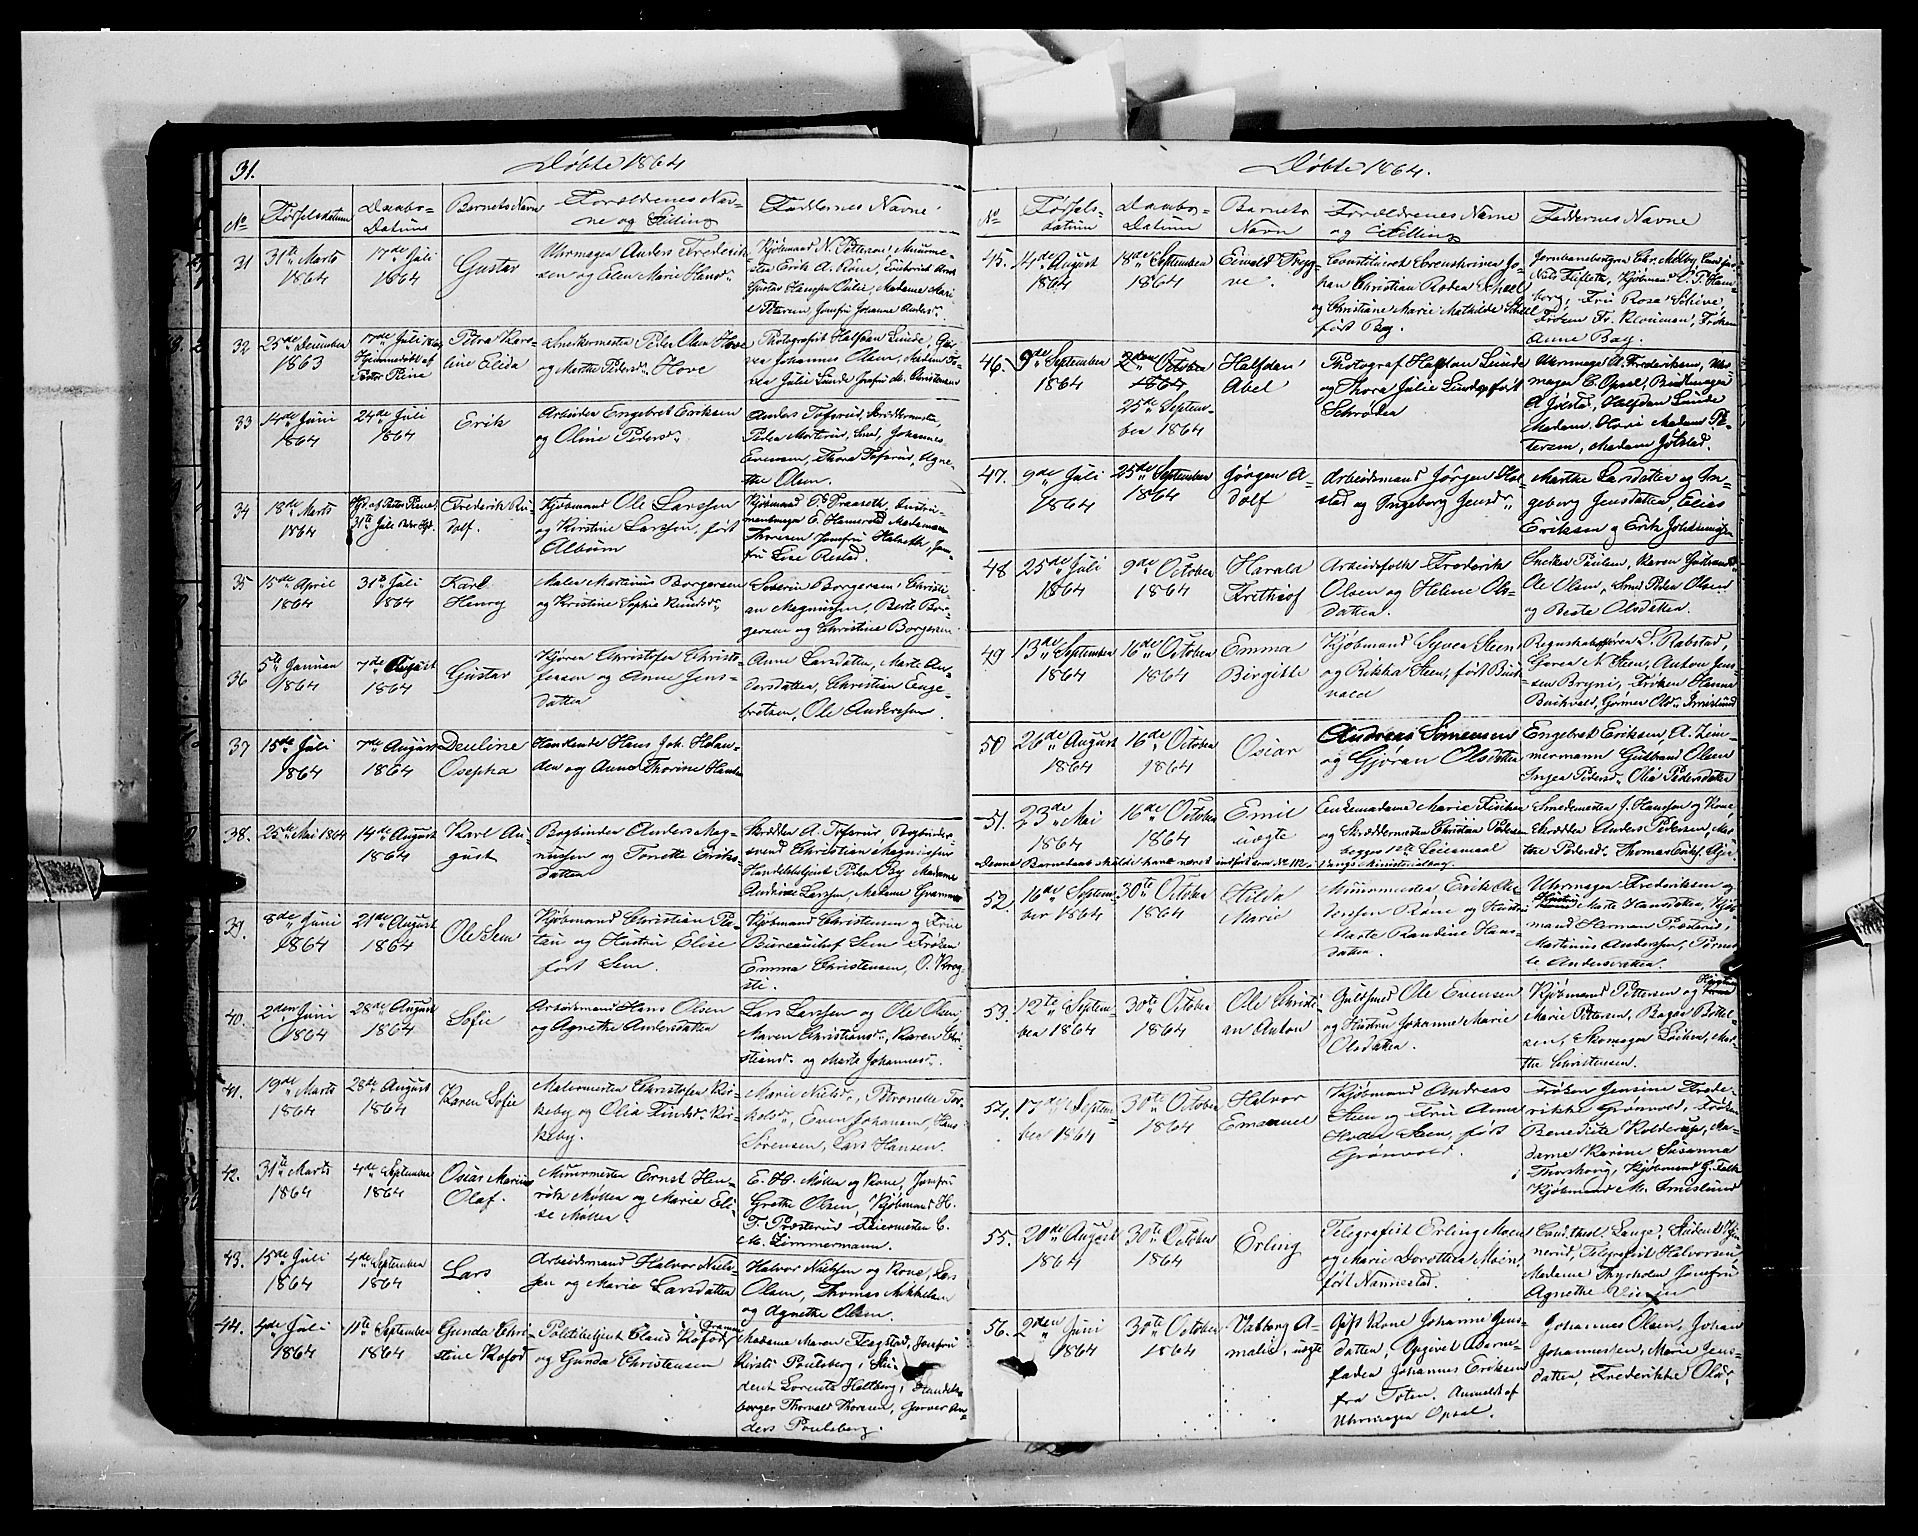 31.
Døbte 1864
No
Fødselsdatum
Daabs-
Datum
Barnets Navn
Forældrenes Nav-
ne og Stilling
Faddernes Navne
31
31te Marts
1864
17de Juli
1864
Gustav
Uhrmager Anders Frederik-
sen og Olea Marie Hansd.
Kjøbmand N. Pettersen, Muurme-
ster Erik A. Røne,
Gustav Hansen Madame Mari-
e Pettersen Jomfru Johanne Andersd.
32
25de December
1863
17de Juli 1864
Hjemmedøbt af
Pastor Peine
Petra Karo-
line Elida
Snedkermester Peder Olsen Hove
og Marthe Pedersd. Hove
Photografist Halfdan Lunde,
Johannes Olsen, Madam
Julie Lunde Jomfru M. Christensen
33
14de Juni
1864
24de Juli
1864
Erik
Arbeider Engebret Eriksen
og Oline Pedersd.
Anders Toserud, Skræddermester,
Peder Morterud, Smed, Johannes
Evensen, Thora Toserud, Agne-
the Olsen.
34
18de Marts
1864
Hjd. af Pastor Peine
31te Juli
Frederik Ru-
dolf.
Kjøbmand Ole Larssen
og Kirstine Larssen, født
Album
Kjøbmand P. Fraaseth, Instru-
mentmager C. Hamsrod Madame
Thoresen Jomfru Halseth, Jom-
fru Lise Restad.
35
15de April
1864
31te Juli
1864
Karl
Henry
Maler Martinus Borgersen
og Kristine Sophie Knudsd.
Severin Borgersen, Christi-
an Magnussen, Berte Bor-
gersen og Christine Borgersen
36
5te Januar
1864
7de August
1864
Gustav
Kjører Christofer Christo-
fersen og Anne Jens-
datter
Anne Larsdatter, Marte An-
dersdatter, Christian Enge-
bretsen, Ole Anderssen.
37
15de Juli
1864
7de August
1864
Deuline
Osepha
Handlende Hans Joh. Holan-
der og Anna Thorine Hansen
38.
25de Mai 1864
14de August
1864
Karl Au-
gust
Bogbinder Anders Mag-
nussen og Tonette Eriks-
datter
Skrædder A. Toserud Bogbinder-
svend Christian Magnussen
Handelsbetjent Peder By Madame
Andrine Larssen, Madame Grammer
39.
8de Juni
1864
21de August
1864
Ole Sem
Kjøbmand Christian Pe-
tau og Hustru Elise
født Sem.
Kjøbmand Christensen og Frue
Bureauchef Sem Frøken
Emma Christensen, O. Krog-
sti.
40.
2den Juni
1864
28de August
1864
Sofie
Arbeidsmand Hans Olsen
og Agnethe Andersdatter
Lars Larssen og Ole Olsen,
Maren Christiansd., Karen Chri-
stiansd. og Marte Johannesd.
41.
19de Marts
1864
28de August
1864
Karen Sofie
Malermester Christofer Kir-
keby og Olia Findsd. Kir-
keby.
Marie Nielsd., Petronelle Tor-
kelsd., Even Johansen, Hans
Sørensen, Lars Hansen.
42.
31te Marts
1864
4de September
1864
Oscar Marius
Olaf.
Muurmester Ernst Hen-
rik Møller og Marie Eli-
se Møller.
E. H. Møller og Kone, Jomfru
Grethe Olsen, Kjøbmand H.
T. Præsterud, Feiermester C.
M. Zimmermann.
43.
15de Juli
1864
4de September
1864
Lars
Arbeidsmand Halvor Niels-
sen og Marie Larsdatter
Halvor Nielsen og Kone, Lars
Olsen, Thomas Mikkelsen
og Agnethe Olsen.
44.
4de Juli
1864
11te September
1864
Gunda Chri-
stine Kofod
Politibetjent Claus Kofod
og Gunda Christensen
Madame Maren Flagstad, Jomfru
Kirsti Poulsberg, Stu-
dent Lorents Holtberg, Handels-
borger Thorvald Thoresen, Garver An-
ders Poulsberg.
Døbte 1864.
No
Fødsels-
datum
Daabs-
Datum
Barnets
Navn
Forældrenes Navne
og Stilling
Faddernes Navne
45.
14de August
1864
18de September
1864
Eiwald Tryg-
ve.
Constitueret Sorenskriver Jo-
han Christian Roden Scheel
og Christiane Marie Mathilde Scheel
født Bay.
Jernbanebestyrer Chr. Melby,
Nils Fliflet, Kjøbmand C. P. Ham-
borg, Fru Rosa Schive,
Frøken Fr. Kloumann, Frøken
Anne Bay.
46.
9de September
1864
2den October
1864
25de Septem-
ber 1864
Halfdan
Abel
Photograf Halfdan Lunde
og Thora Julie Lunde født
Schrøder
Uhrmager A. Frederiksen, Uhr-
mager C. Opsal, Buntmager
A. Jølstad, Halfdan Lunde
Madam Hove Madam Pe-
tersen, Madam Jølstad.
47.
9de Juli
1864
25de September
1864
Jørgen A-
dolf
Arbeidsmand Jørgen Hol-
stad og Ingeborg Jensd.
Marthe Larsdatter og In-
geborg Jensdatter, Elias
Eriksen og Erik
48
25de Juli
1864
9de October
1864
Harald
Frithjof
Arbeidsfolk Frederik
Olsen og Helene Ols-
datter.
Snedker Paulsen, Karen Gulbrandsd.
Ole Olsen, Smed Peder Olsen
og Beate Olsdatter.
49
13de September
1864
16de October
1864
Emma
Birgitte
Kjøbmand Syver Steen
og Rikka Steen, født Buch-
vald
Regnskabsfører L. Rabstad,
Garver N. Steen, Anton Jens-
sen Bryni, Frøken Hanna
Buchvald, Garver Ole Irneslund
50
26de August
1864
16de October
1864
Oscar
Andreas Simensen
og Gjøran Olsdatter
Engebret Eriksen, A. Zim-
mermann, Gulbrand Olsen
Inger Pedersd. Olia Pedersdatter
51.
23de Mai
1864
16de October
1864
Emil
uegte
Enkemadame Marie Fischer
og Skræddermester Christian Pedersen
begges 1ste Leiermaal
Smedemester J. Hansson og Kone
Skrædder Anders Pedersen, Mar-
the Pedersd. Thomas
Denne Barnedaab skulde have været indført som No 112. i Vangs Ministerialbog.
52.
16de Septem-
ber 1864
30te October
1864
Hilda
Marie
Muurmester Erik An-
derssen Røne og Hustru
Marte Randine Han-
datter.
Uhrmager Frederiksen og
Hustru Marte Hansdatter, Kjøb-
mand Herman Præsterud,
Martinus Anderssen, Pernil-
le Andersdatter.
53.
12te Septem-
ber 1864
30te October
1864
Ole Christi-
an Anton
Guldsmed Ole Evensen
og Hustru Johanne Marie
Olsdatter.
Kjøbmand Pettersen og Hustru
Marie Pettersen, Bager Bottol-
sen, Skomager Løiten, Mar-
the Christensen.
54.
15de Septem-
ber 1864
30te October
1864
Halvor
Emanuel
Kjøbmand Andreas
Steen og Fru Anna
Steen, født
Grønvold.
Frøken Jensine Frede-
rikke Grønvold, Frøken
Benedicte Kolderup, Ma-
dame Karine Susanna
Thorshaug, Kjøbmand G. Falk
Kjøbmand M. Irneslund
55.
20de August
1864
30te October
1864
Erling
Telegrafist Erling Moen
og Marie Dorothea Moen,
født Nannestad.
Cand. theol. Lange, Student
Telegrafist Halvorsen,
Madame Thrysholm Jomfru
Agnethe
56.
2den Juni
1864
30te October
1864
Valborg A-
malie, uegte
Gift Kone Johanne Jens-
datter, Opgivet Barne-
fader Johannes Eriksen
fra Toten. Anmeldt af
Uhrmager Opsal.
Johannes Olsen, Johan
Johannessen, Marie Jens-
datter, Frederikke Olsd.